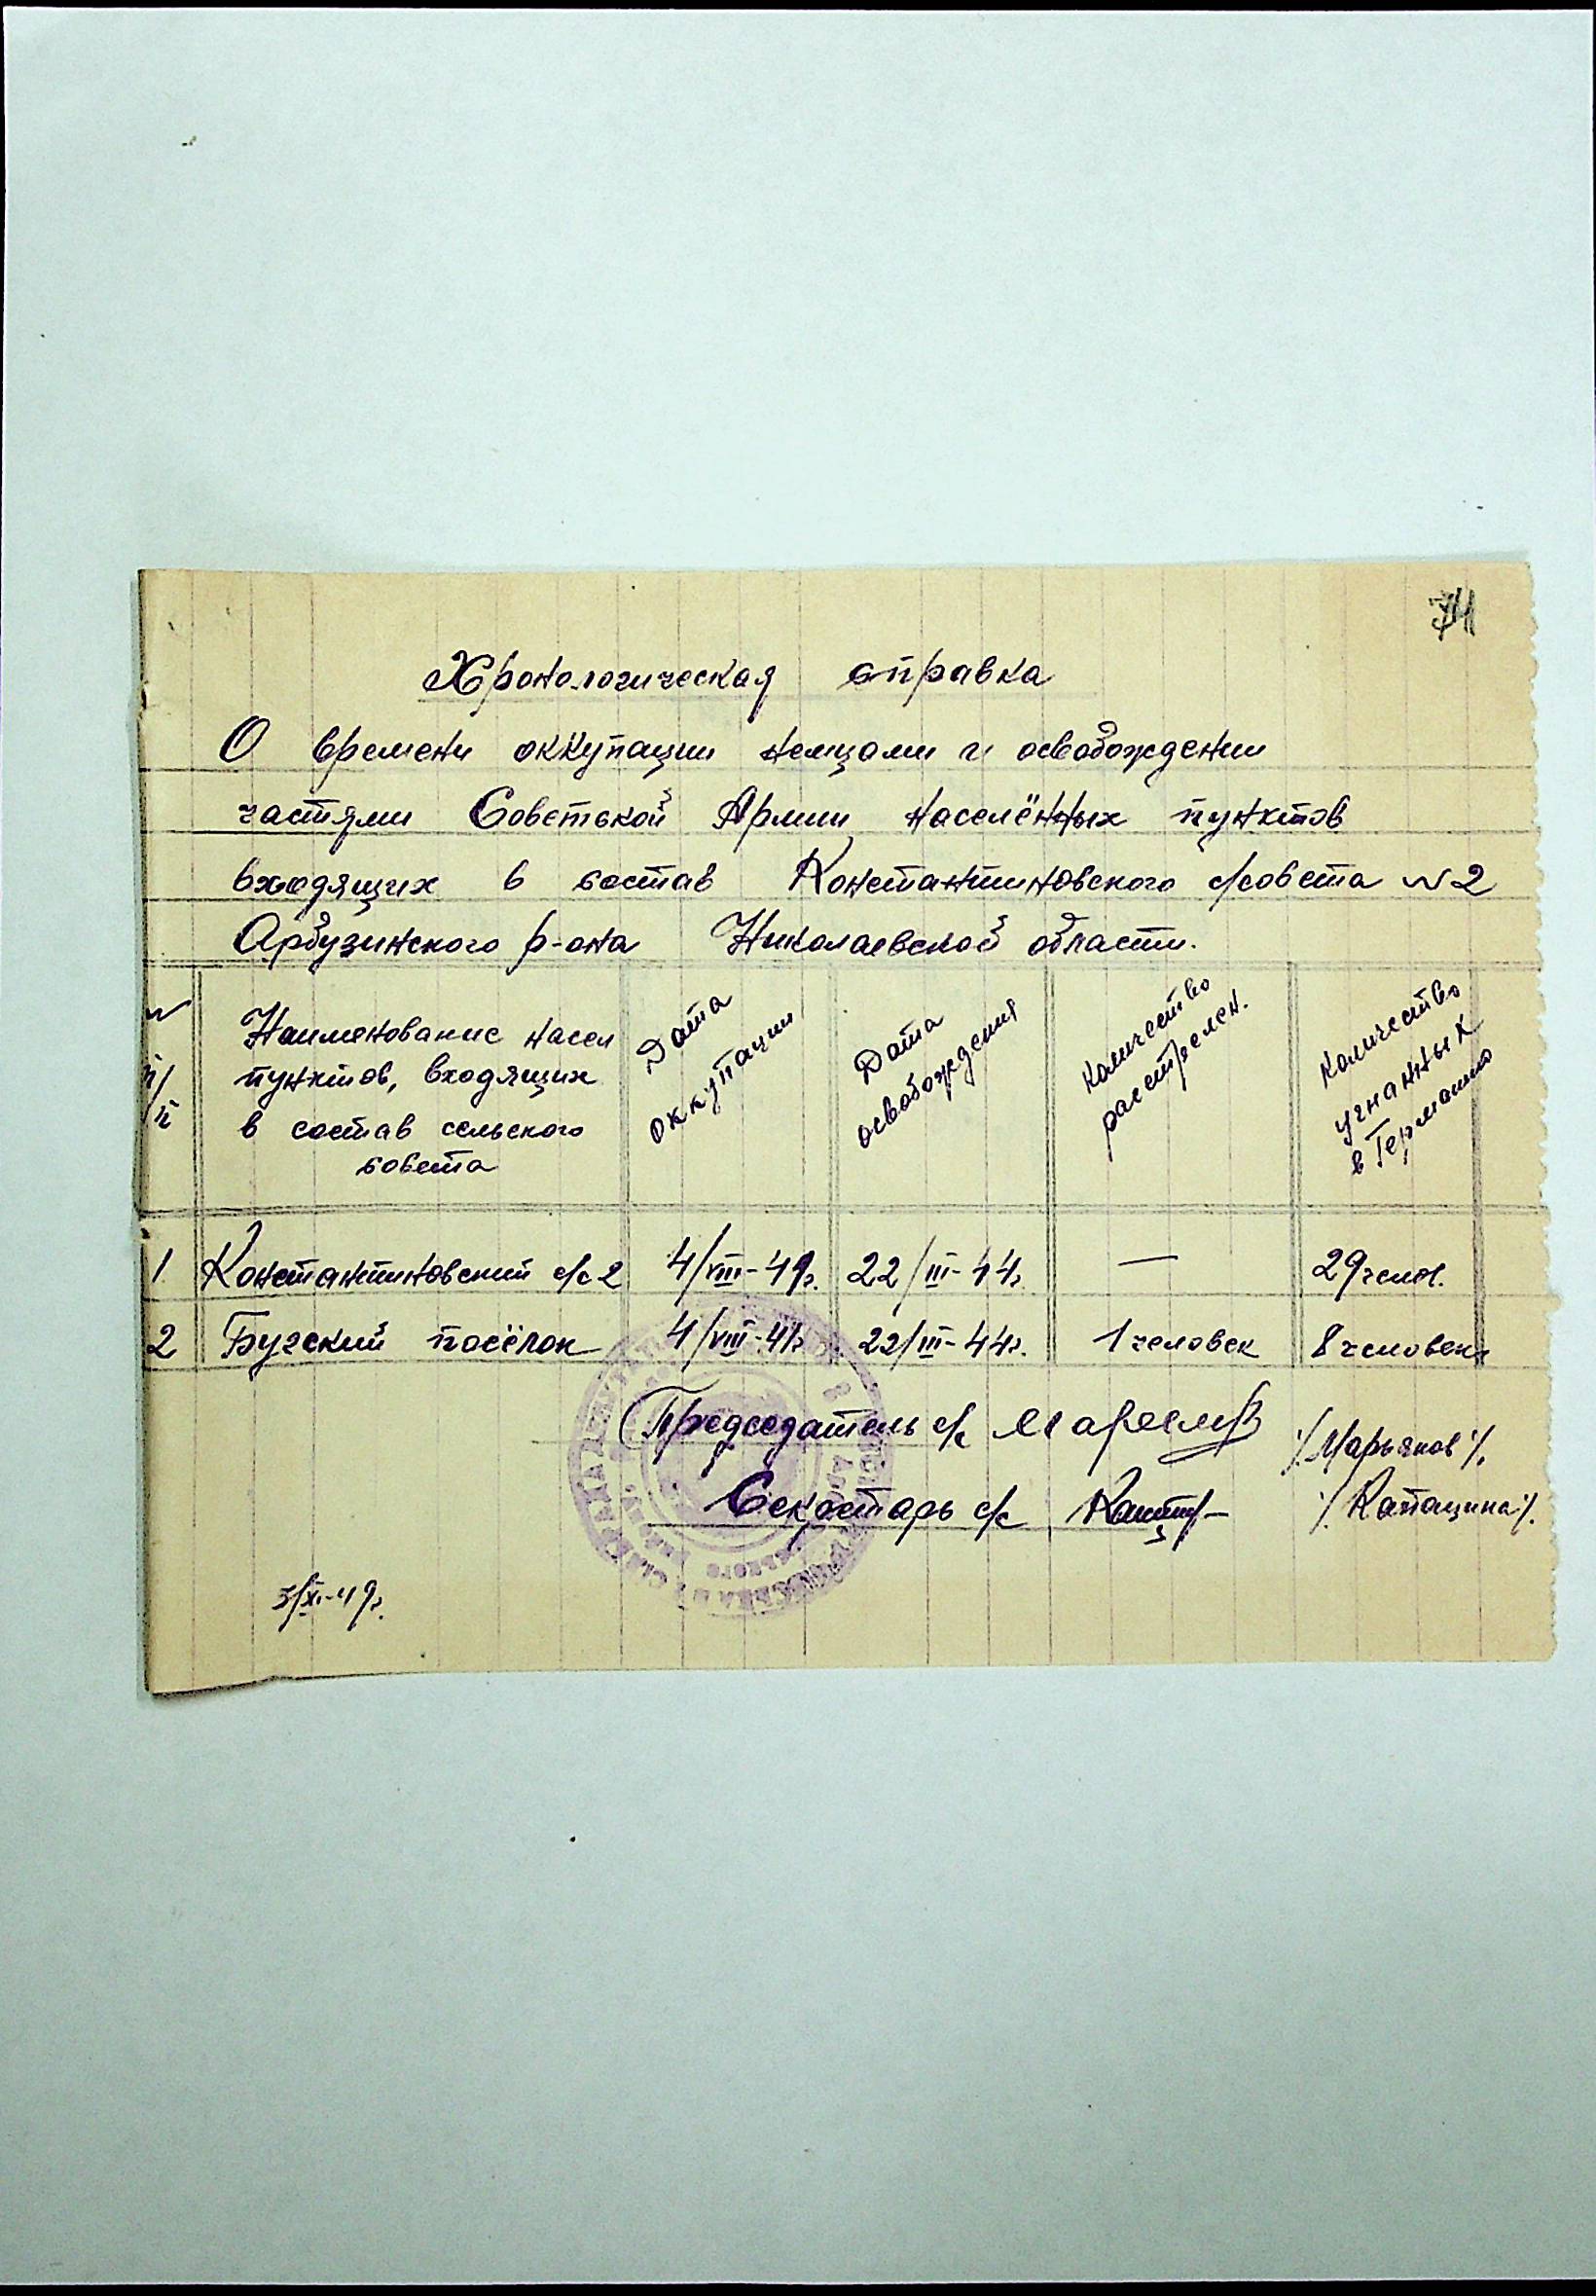 74
Хронологическая справка
О времени оккупации немцами и освобождении
частями Советской Армии населённых пунктов
входящих в состав Константиновского с/совета №2
Арбузинского р-она Николаевской области.
№ п/п
Наименование насел
пунктов, входящих
в состав сельского
совета
Дата
оккупации
Дата
освобождения
Количество
расстрелен.
Количество
угнанных
в Германию
1 Константиновский с/с 2 4/VIII-41г. 22/III-44г. — 29 челов.
2 Бугский посёлок 4/VIII-41г. 22/III-44г. 1 человек 8 человек
Председатель с/с /Марьянов/.
Секретарь с/с /Капацина/.
3/XI-49г.